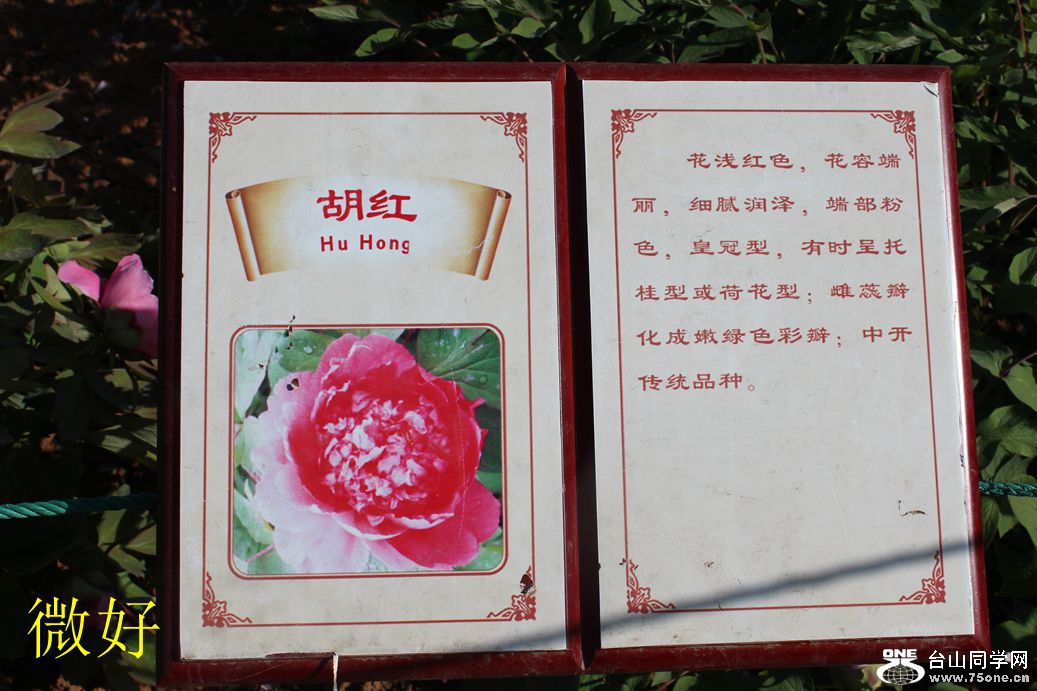 胡红
Hu Hong
花浅红色，花容端
丽，细腻润泽，端部粉
色，皇冠型，有时呈托
桂型或荷花型；雌蕊瓣
化成嫩绿色彩瓣；中开
传统品种。
微好
ONE 台山同学网
www.75one.cn